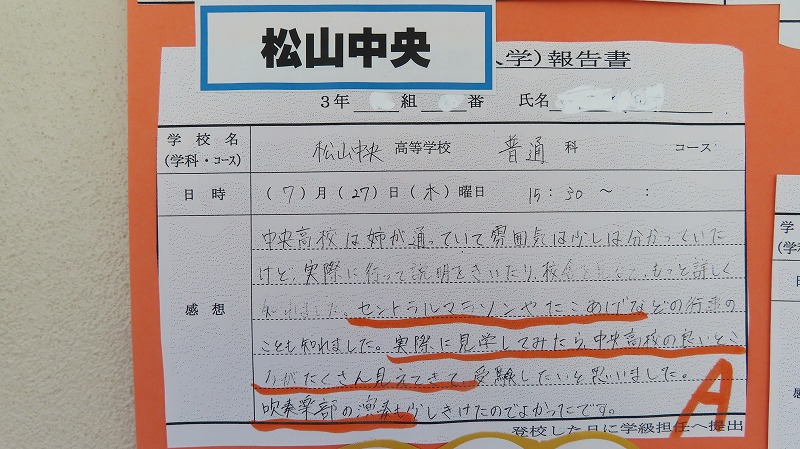 松山中央
入学)報告書
3年 組 番 氏名
学校名 松山中央 高等学校 普通 科 コース
(学科・コース)
日時 (7)月(27)日(木)曜日 15:30～ :
中央高校は姉が通っていて雰囲気は少しは分かっていた
けど、実際に行って説明をきいたり、校舎を見て、もっと詳しく
感想 知れました。セントラルマラソンやたこあげなどの行事の
ことも知れました。実際に見学してみたら、中央高校の良いとこ
ろがたくさん見えてきて、受験したいと思いました。
吹奏楽部の演奏も少しきけたのでよかったです。
A
登校した日に学級担任へ提出
学
(学科
日
感